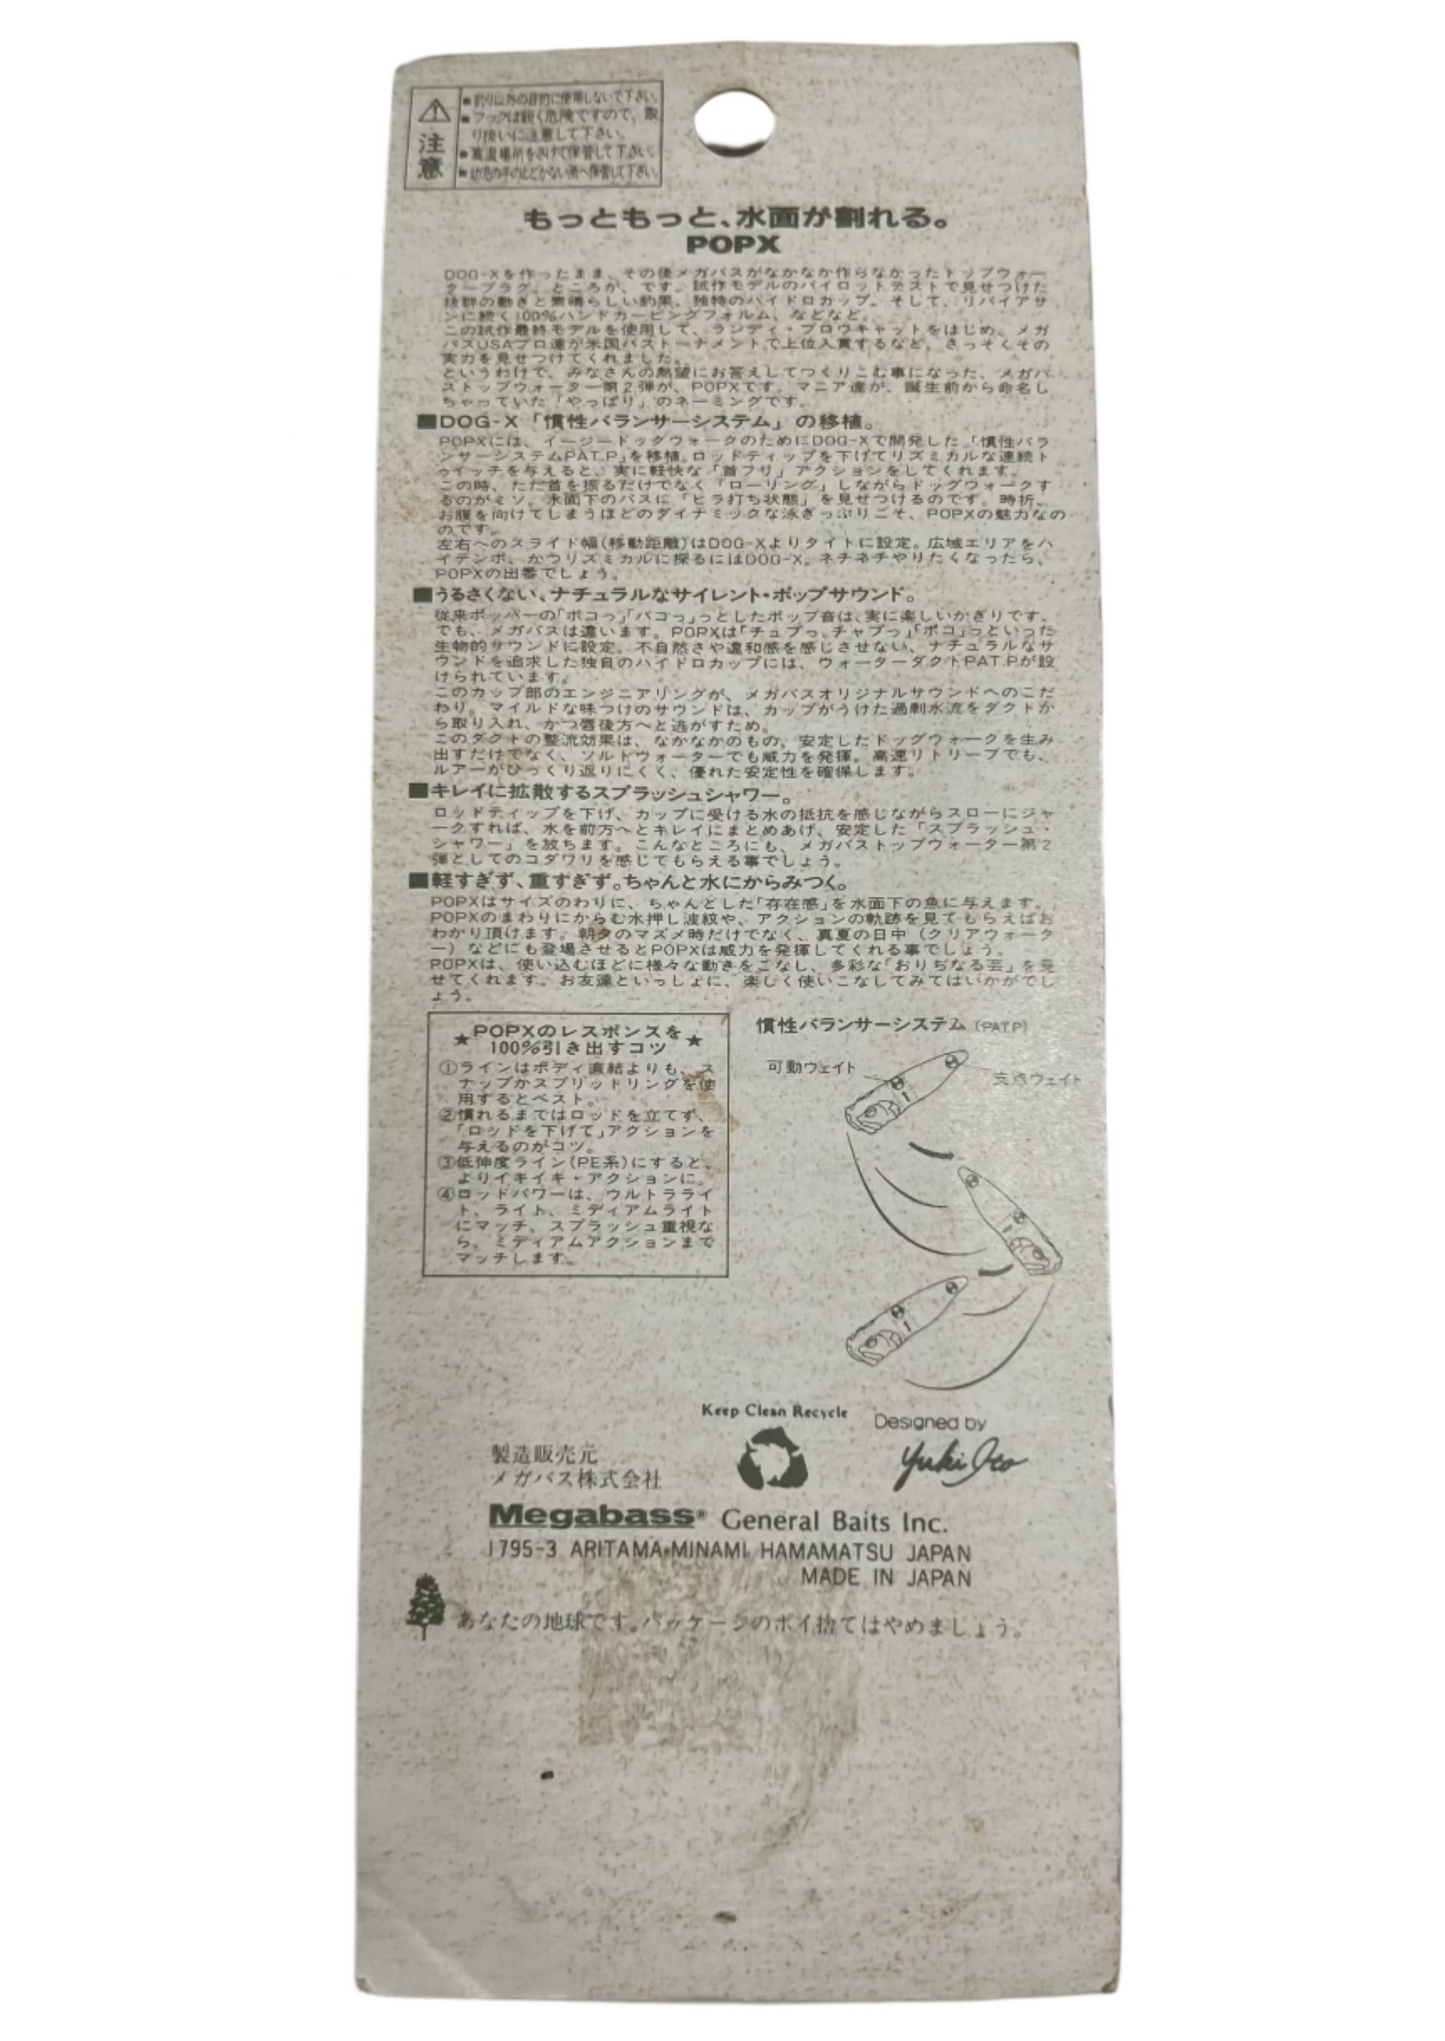 注意
●釣り以外の目的に使用しないで下さい。
●フックは鋭く危険ですので、取
り扱いに注意して下さい。
●高温場所をさけて保管して下さい。
●幼児の手のとどかない所へ保管して下さい。
もっともっと、水面が割れる。
POPX
DOG-Xを作ったまま、その後メガバスがなかなか作らなかったトップウォー
タープラグ。ところが、です。試作モデルのパイロットテストで見せつけた
抜群の動きと素晴らしい釣果。独特のハイドロカップ。そして、リバイアサ
ンに続く100%ハンドカービングフォルム、などなど。
この試作最終モデルを使用して、ランディ・ブロウキャットをはじめ、メガ
バスUSAプロ達が米国バストーナメントで上位入賞するなど、さっそくその
実力を見せつけてくれました。
というわけで、みなさんの熱望にお答えしてつくりこむ事になった、メガバ
ストップウォーター第2弾が、POPXです。マニア達が、誕生前から命名し
ちゃっていた「やっぱり」のネーミングです。
■DOG-X「慣性バランサーシステム」の移植。
POPXには、イージードッグウォークのためにDOG-Xで開発した「慣性バラ
ンサーシステムPAT.P」を移植。ロッドティップを下げてリズミカルな連続ト
ゥイッチを与えると、実に軽快な「首フリ」アクションをしてくれます。
この時、ただ首を振るだけでなく「ローリング」しながらドッグウォークす
るのがミソ。水面下のバスに「ヒラ打ち状態」を見せつけるのです。時折、
お腹を向けてしまうほどのダイナミックな泳ぎっぷりこそ、POPXの魅力なの
のです。
左右へのスライド幅(移動距離)はDOG-Xよりタイトに設定。広域エリアをハ
イテンポ、かつリズミカルに探るにはDOG-X。ネチネチやりたくなったら、
POPXの出番でしょう。
■うるさくない、ナチュラルなサイレント・ポップサウンド。
従来ポッパーの「ポコっ」「バコっ」っとしたポップ音は、実に楽しいかぎりです。
でも、メガバスは違います。POPXは「チュプっ、チャプっ」「ポコ」っといった
生物的サウンドに設定。不自然さや違和感を感じさせない、ナチュラルなサ
ウンドを追求した独自のハイドロカップには、ウォーターダクトPAT.Pが設
けられています。
このカップ部のエンジニアリングが、メガバスオリジナルサウンドへのこだ
わり。マイルドな味つけのサウンドは、カップがうけた過剰水流をダクトか
ら取り入れ、かつ唇後方へと逃がすため。
このダクトの整流効果は、なかなかのもの。安定したドッグウォークを生み
出すだけでなく、ソルトウォーターでも威力を発揮。高速リトリーブでも、
ルアーがひっくり返りにくく、優れた安定性を確保します。
■キレイに拡散するスプラッシュシャワー。
ロッドティップを下げ、カップに受ける水の抵抗を感じながらスローにジャ
ークすれば、水を前方へとキレイにまとめあげ、安定した「スプラッシュ・
シャワー」を放ちます。こんなところにも、メガバストップウォーター第2
弾としてのコダワリを感じてもらえる事でしょう。
■軽すぎず、重すぎず。ちゃんと水にからみつく。
POPXはサイズのわりに、ちゃんとした「存在感」を水面下の魚に与えます。
POPXのまわりにからむ水押し波紋や、アクションの軌跡を見てもらえばお
わかり頂けます。朝夕のマズメ時だけでなく、真夏の日中（クリアウォータ
ー）などにも登場させるとPOPXは威力を発揮してくれる事でしょう。
POPXは、使い込むほどに様々な動きをこなし、多彩な「おりぢなる芸」を見
せてくれます。お友達といっしょに、楽しく使いこなしてみてはいかがでし
ょう。
★POPXのレスポンスを★
100%引き出すコツ
①ラインはボディ直結よりも、ス
ナップかスプリットリングを使
用するとベスト。
②慣れるまではロッドを立てず、
「ロッドを下げて」アクションを
与えるのがコツ。
③低伸度ライン(PE系)にすると、
よりイキイキ・アクションに。
④ロッドパワーは、ウルトラライ
ト、ライト、ミディアムライト
にマッチ、スプラッシュ重視な
ら、ミディアムアクションまで
マッチします。
慣性バランサーシステム（PAT.P）
可動ウェイト
支点ウェイト
Keep Clean Recycle
Designed by
Yuki Ito
製造販売元
メガバス株式会社
Megabass® General Baits Inc.
1795-3 ARITAMA-MINAMI HAMAMATSU JAPAN
MADE IN JAPAN
あなたの地球です。パッケージのポイ捨てはやめましょう。